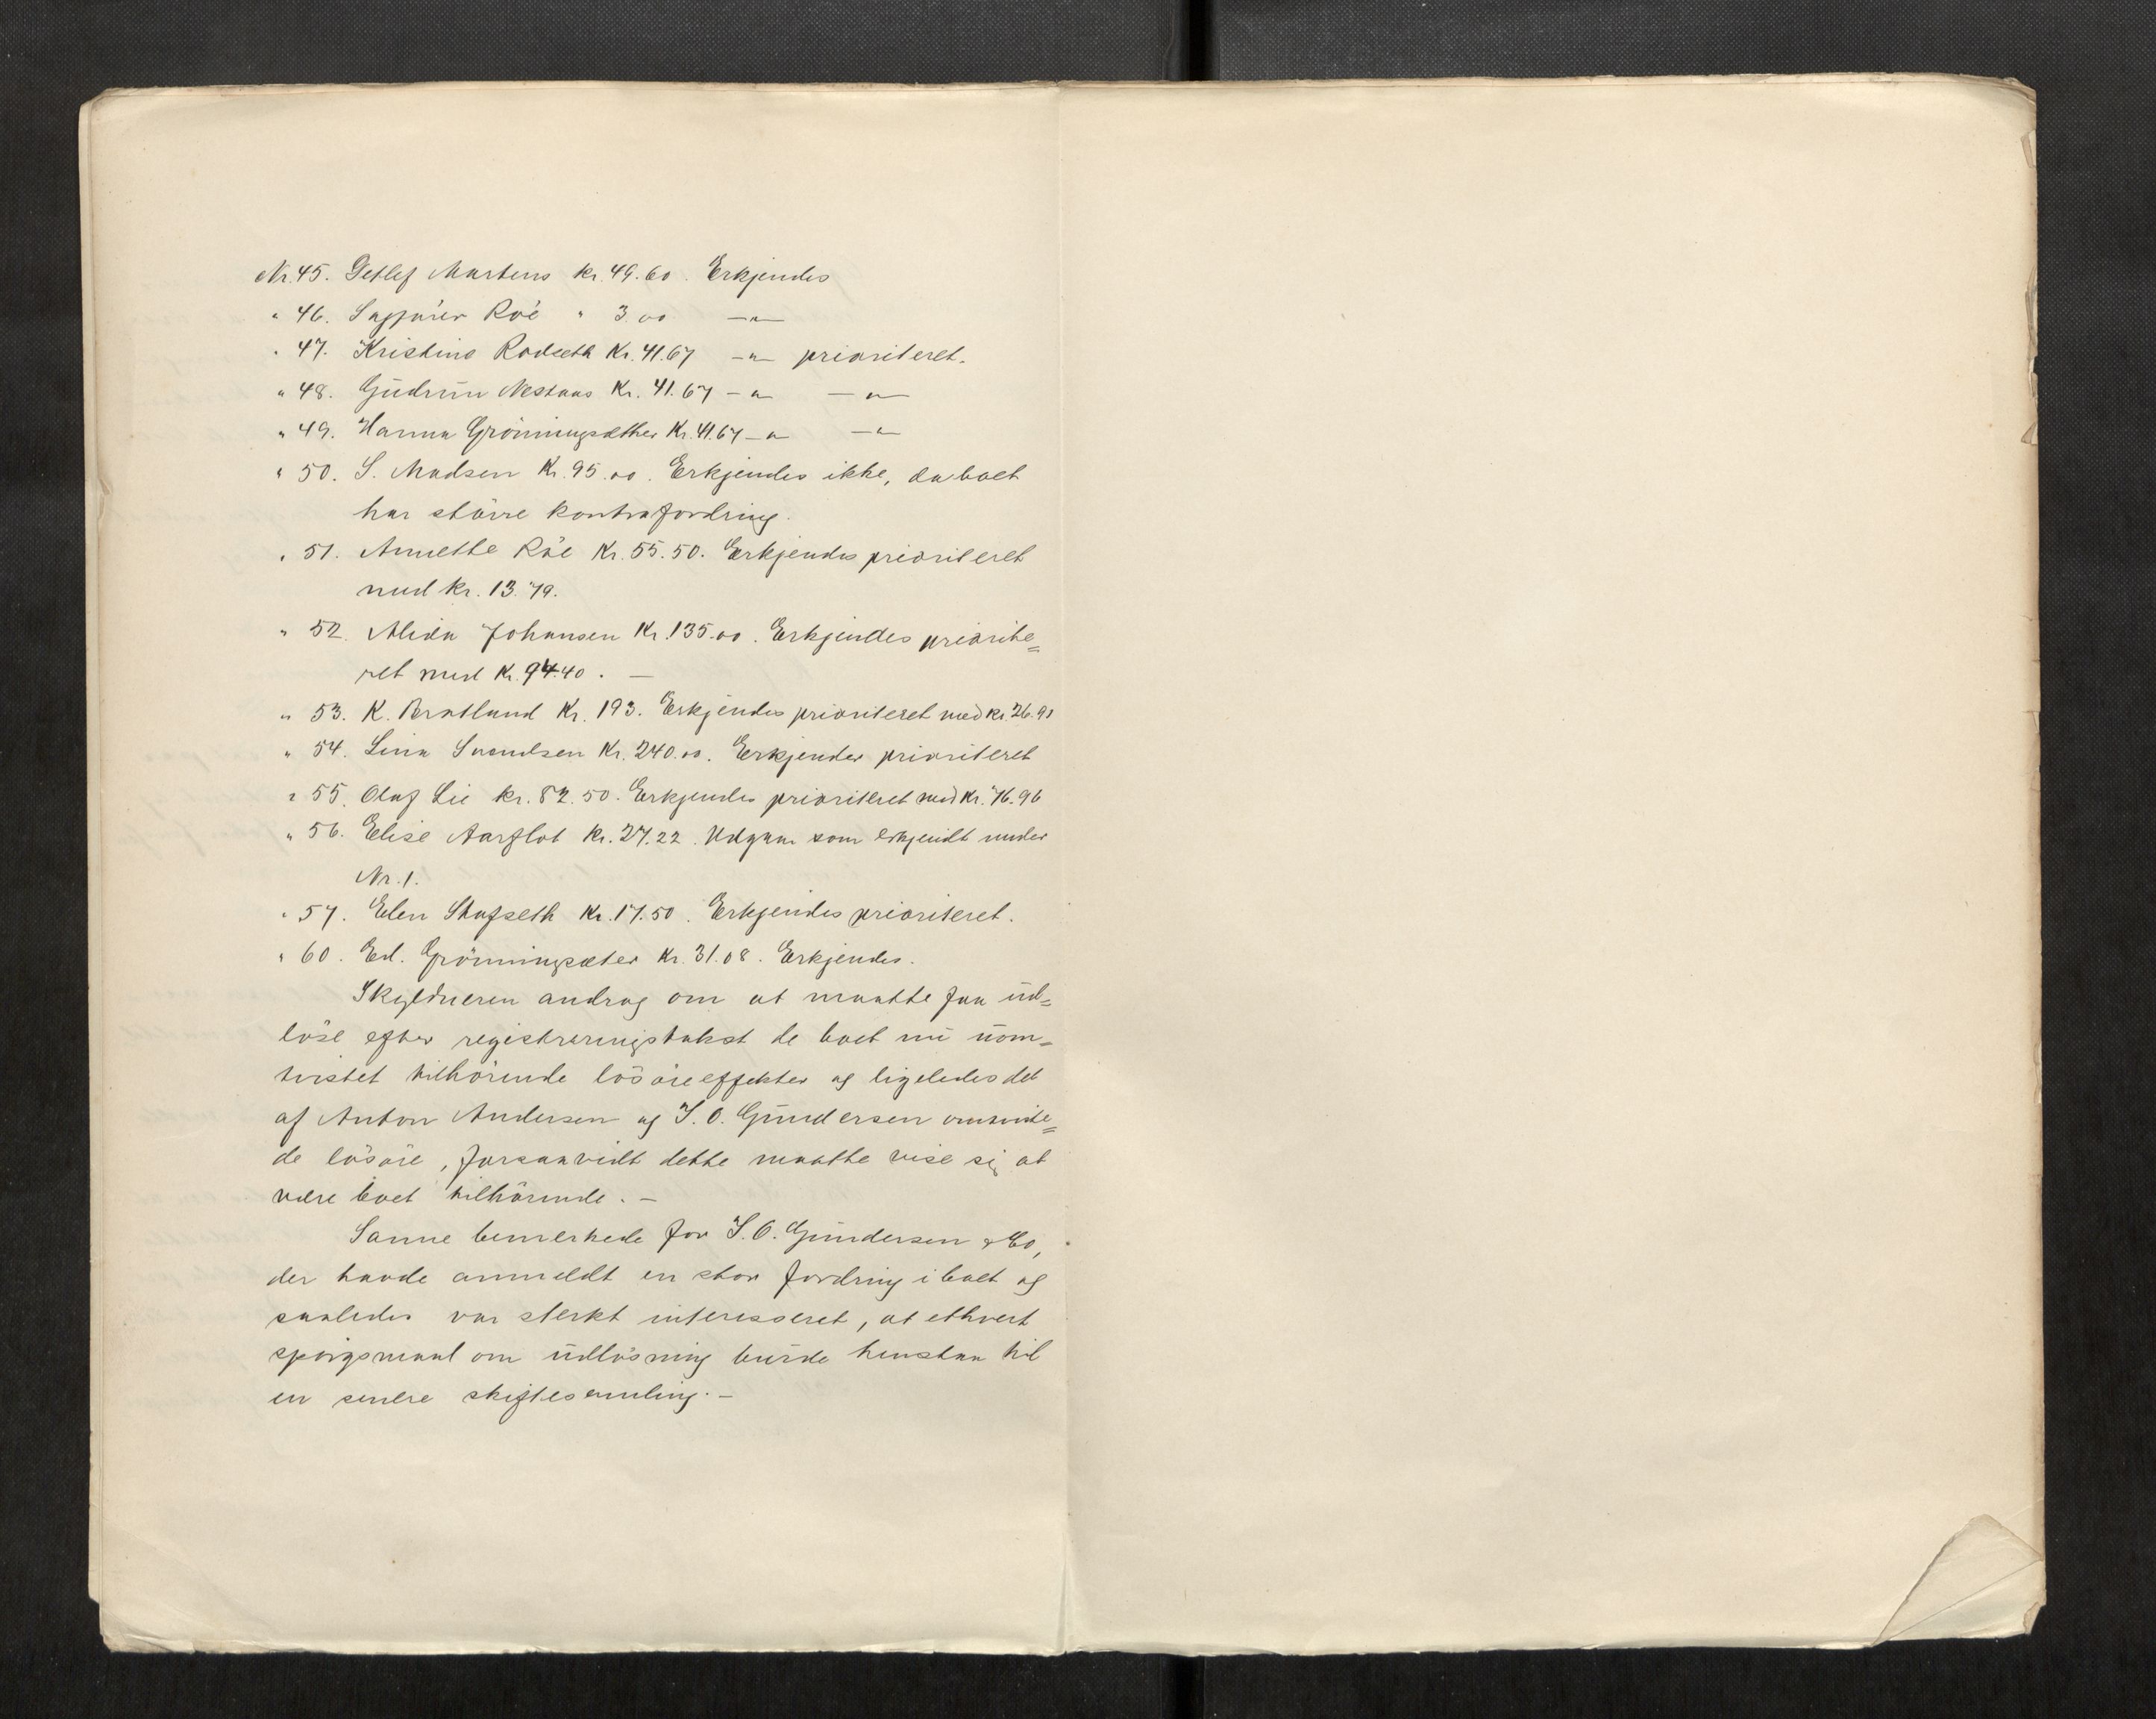 Nr. 45. Detlef Martens kr. 49.60. Erkjendes
" 46. Sagfører Röe " 3.00 —"—
" 47. Kristine Rodseth Kr. 41.67 —"— prioriteret.
" 48. Gudrun Nestaas Kr. 41.67 —"— —"—
" 49. Hanna Grönningsæther Kr. 41.67 —"— —"—
" 50. S. Madsen Kr. 95.00. Erkjendes ikke, da boet
har större kontrafordring.
" 51. Annette Röe Kr. 55.50. Erkjendes prioriteret
med kr. 13.79.
" 52. Alida Johansen Kr. 135.00. Erkjendes priorite=
ret med Kr. 94.40. —
" 53. K. Bratland Kr. 193. Erkjendes prioriteret med kr. 26.91
" 54. Lina Svendsen Kr. 240.00. Erkjendes prioriteret
" 55. Oluf Lie kr. 82.50. Erkjendes prioriteret med Kr. 76.96
" 56. Elise Aarflot Kr. 27.22. Udgaar som erkjendt under
Nr. 1.
" 57. Elen Skafseth Kr. 17.50. Erkjendes prioriteret.
" 60. Ed. Grönningsæter Kr. 31.08. Erkjendes.
Skyldneren androg om at maatte faa ud=
löse efter registreringstakst de boet nu uom=
tvistet tilhörende lösöreeffekter og ligeledes det
af Anton Andersen og S. O. Gundersen omtviste=
de lösöre, forsaavidt dette maatte vise sig at
være boet tilhörende. —
Sanne bemerkede for S. O. Gundersen & Co,
der havde anmeldt en stor fordring i boet og
saaledes var sterkt interesseret, at ethvert
spörgsmaal om udlösning burde henstaa til
en senere skiftesamling. —